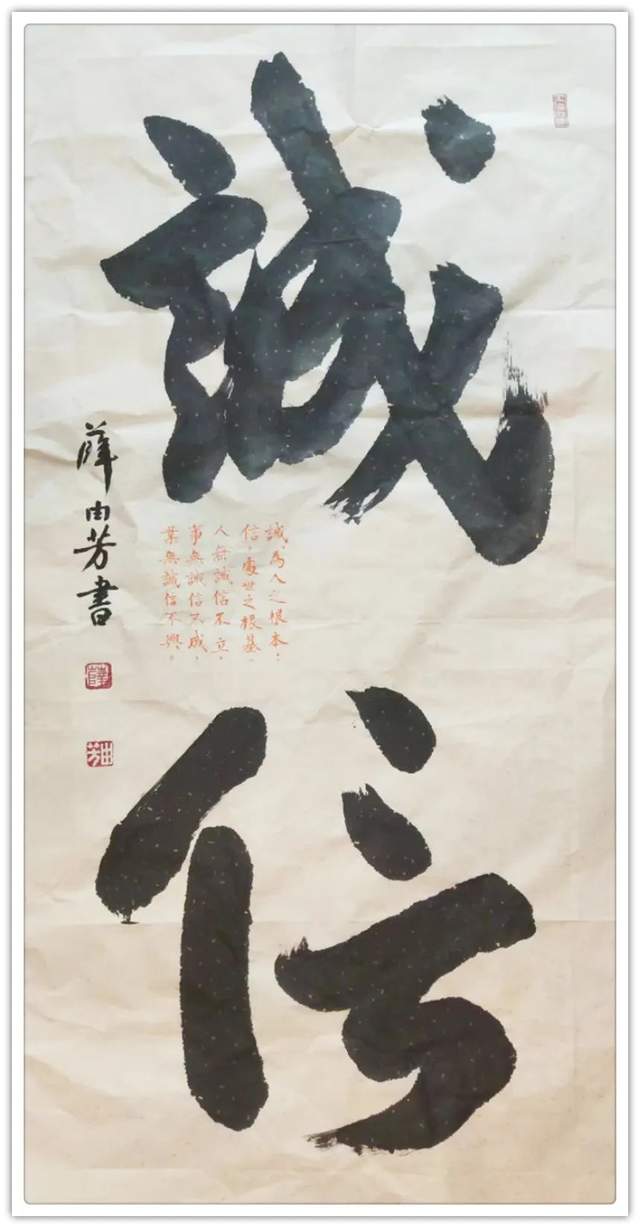 誠信
誠，為人之根本；
信，處世之根基。
人無誠信不立，
事無誠信不成，
業無誠信不興。
薛由芳書
薛
由芳